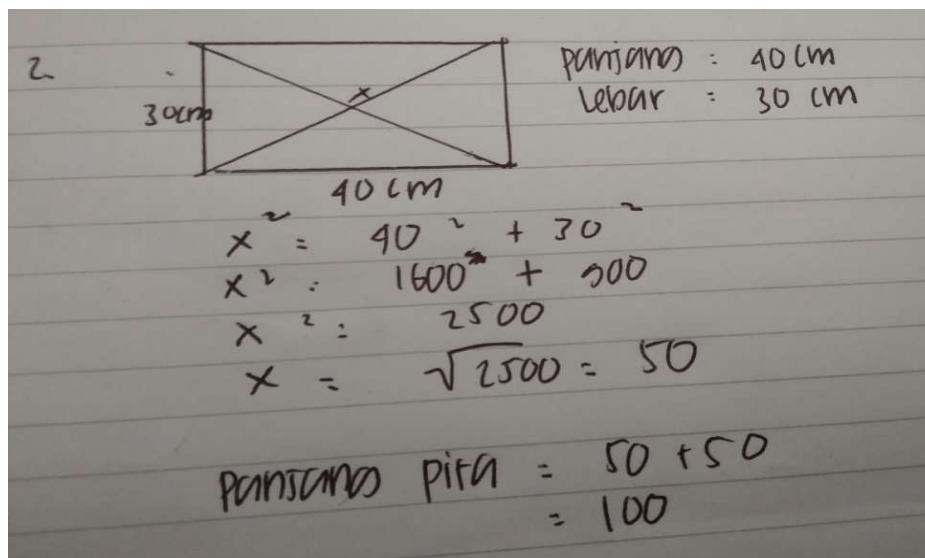 2
30cm
x
40 cm
panjang : 40 cm
Lebar : 30 cm
x² = 40² + 30²
x² : 1600 + 900
x² : 2500
x = √2500 = 50
panjang pita = 50 + 50
= 100